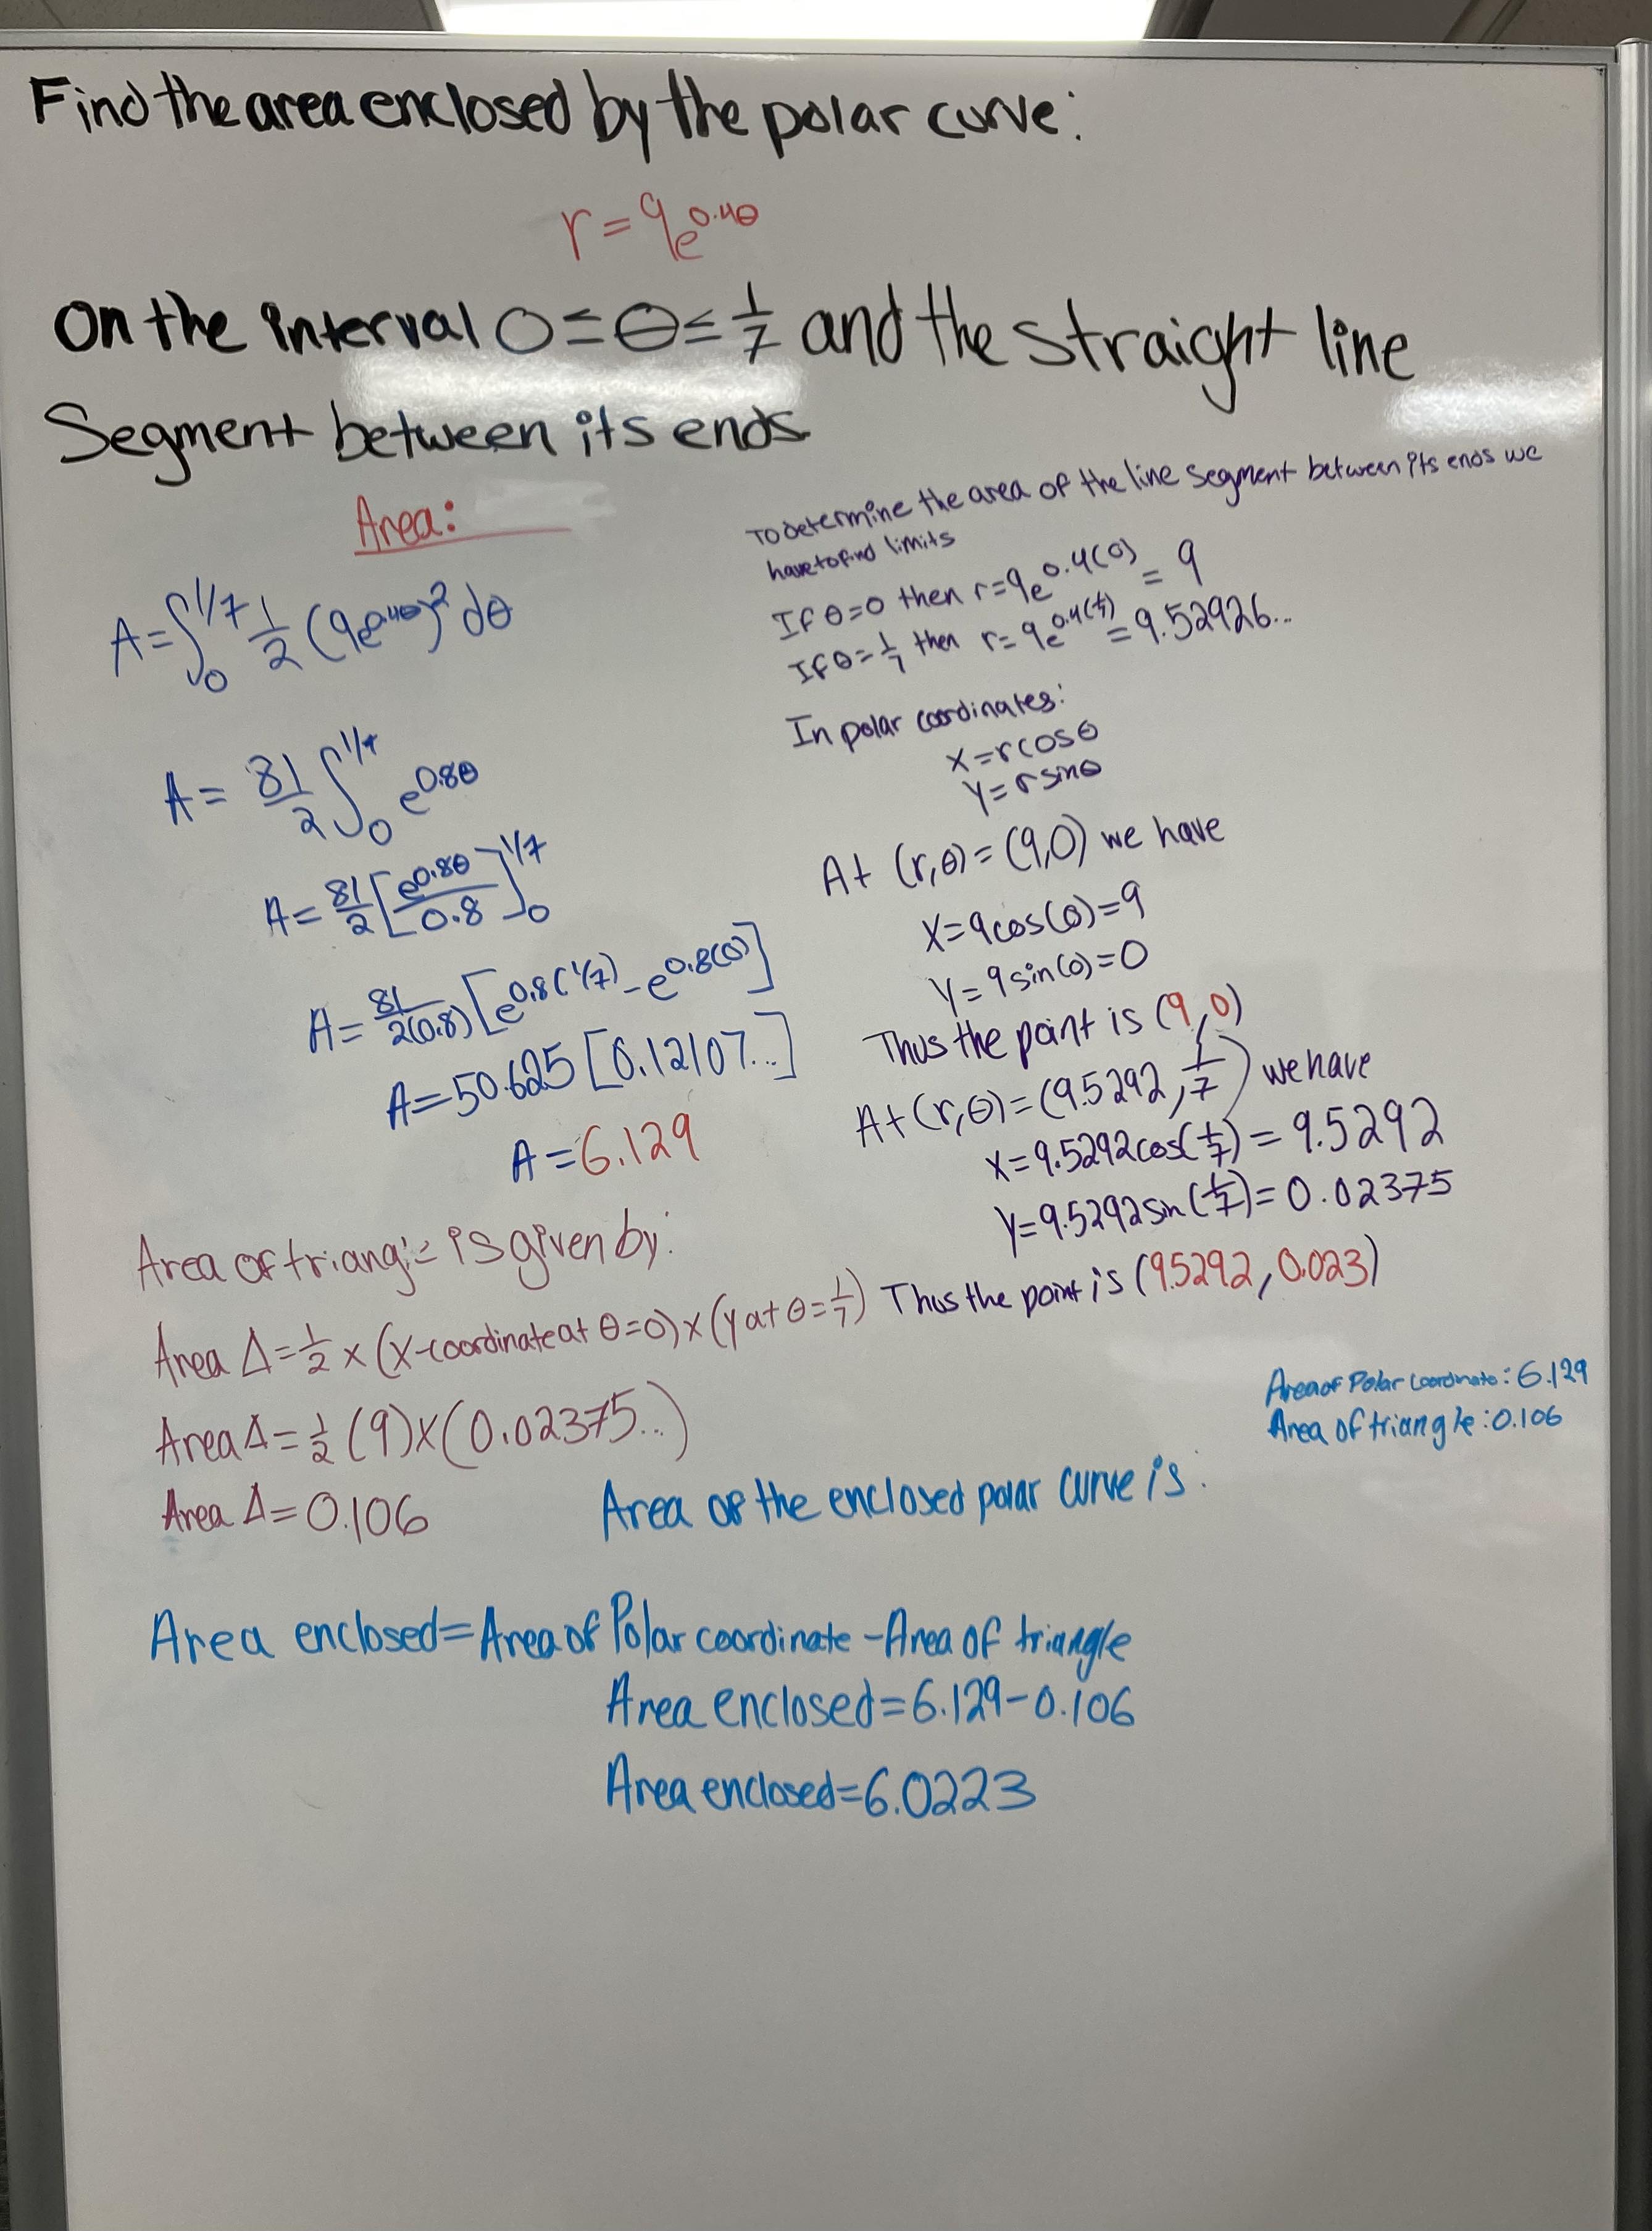 Find the area enclosed by the polar curve:
r = 9e^0.4θ
On the interval 0 ≤ θ ≤ 1/7 and the straight line
Segment between its ends.
Area:
A = ∫₀^1/7 1/2 (9e^0.4θ)² dθ
A = 81/2 ∫₀^1/7 e^0.8θ
A = 81/2 [e^0.8θ / 0.8]₀^1/7
A = 81/2(0.8) [e^0.8(1/7) - e^0.8(0)]
A = 50.625 [0.12107...]
A = 6.129
To determine the area of the line segment between its ends we
have to find limits
If θ=0 then r=9e^0.4(0) = 9
If θ=1/7 then r=9e^0.4(1/7) = 9.52926...
In polar coordinates:
X=rcosθ
Y=rsinθ
At (r,θ)=(9,0) we have
X=9cos(0)=9
Y=9sin(0)=0
Thus the point is (9,0)
At (r,θ)=(9.5292, 1/7) we have
X=9.5292cos(1/7)=9.5292
Y=9.5292sin(1/7)=0.02375
Thus the point is (9.5292, 0.023)
Area of triangle is given by:
Area Δ = 1/2 x (X-coordinate at θ=0) x (y at θ=1/7)
Area Δ = 1/2 (9) x (0.02375..)
Area Δ = 0.106
Area of Polar coordinate: 6.129
Area of triangle: 0.106
Area of the enclosed polar curve is:
Area enclosed = Area of Polar coordinate - Area of triangle
Area enclosed = 6.129 - 0.106
Area enclosed = 6.0223